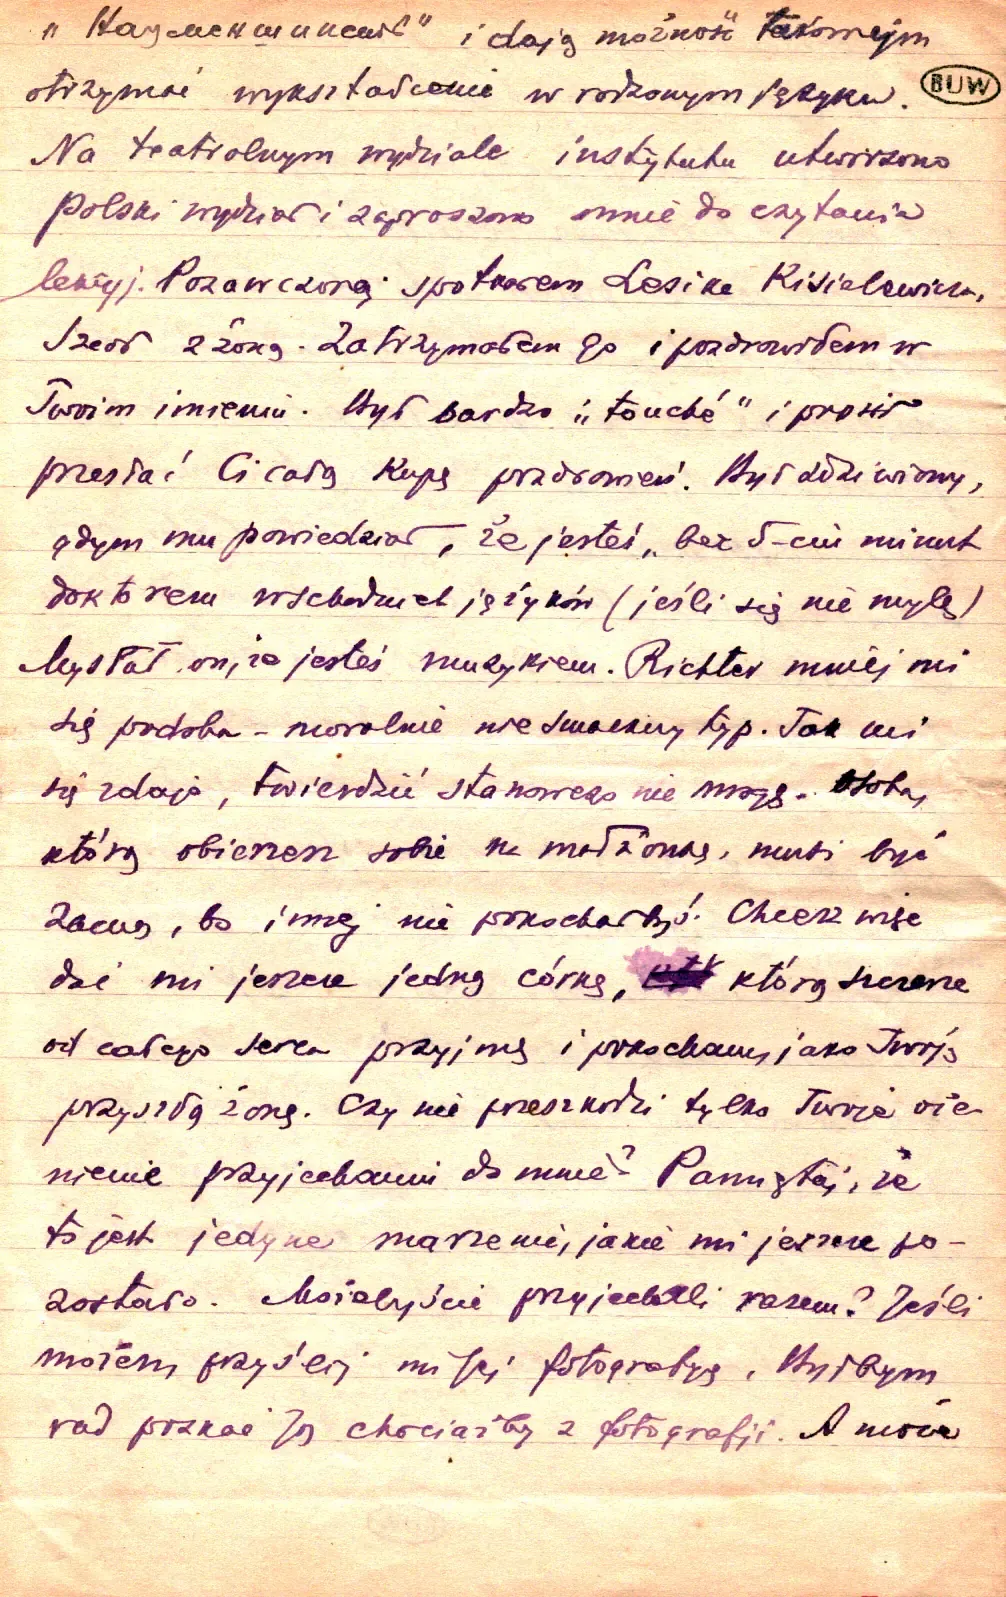 „Нацменшинств" i dają możność takowejm
otrzymać wykształcenie w rodzonym języku.
BUW
Na teatralnym wydziale instytutu utworzono
polski wydział i zaproszono mnie do czytania
lekcyj. Pozawczoraj spotkałem Lesika Kisielewicza,
szedł z żoną. Zatrzymałem go i pozdrowiłem w
Twoim imieniu. Był bardzo „touché" i prosił
przesłać Ci całą kupę pozdrowień. Był zdziwiony,
gdym mu powiedział, że jesteś „bez 5-ciu minut
doktorem wschodnich języków (jeśli się nie mylę)
Myślał on, że jesteś muzykiem. Richter mniej mi
się podoba – moralnie niesmaczny typ. Tak mi
się zdaje, twierdzić stanowczo nie mogę. Osoba,
którą obierzesz sobie na małżonkę, musi być
zacną, bo innej nie pokochałbyś. Chcesz więc
dać mi jeszcze jedną córkę, którą szczerze
od całego serca przyjmę i pokocham, jako Twoją
przyszłą żonę. Czy nie przeszkodzi tylko Twoje oże-
nienie przyjechaniu do mnie? Pamiętaj, że
to jest jedyne marzenie, jakie mi jeszcze po-
zostało. Możebyście przyjechali razem? Jeśli
możesz, przyślij mi Jej fotografyę. Byłbym
rad poznać Ją chociażby z fotografji. A może